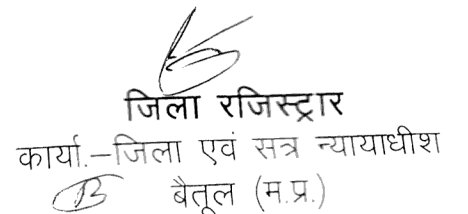 जिला रजिस्ट्रार
कार्या.–जिला एवं सत्र न्यायाधीश
बैतूल (म.प्र.)